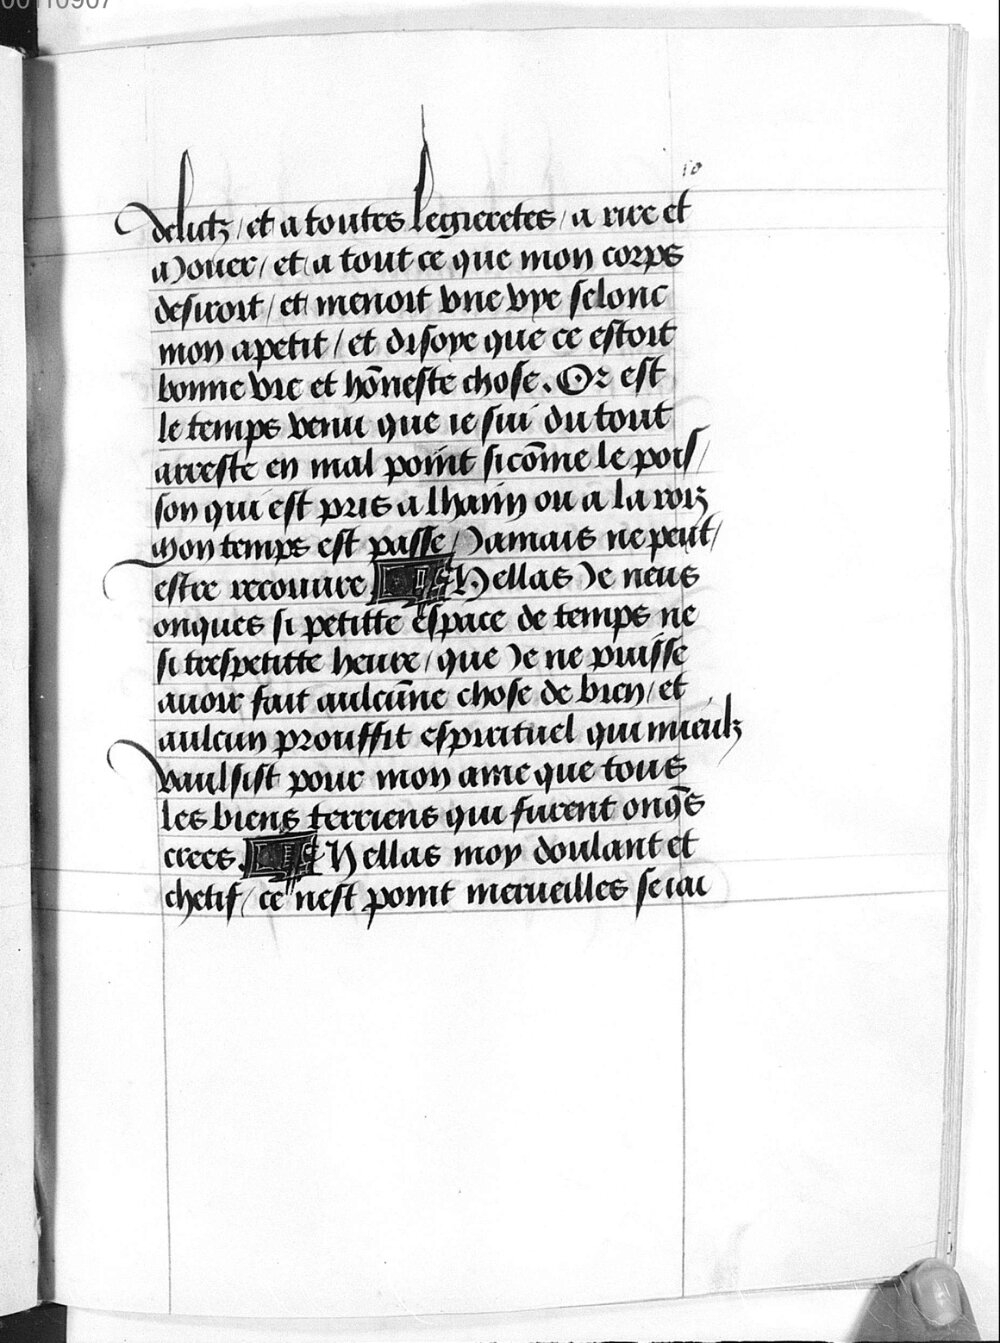 00110907
10
delictz / et a toutes legieretes / a rire et
a Jouer / et a tout ce que mon corps
desiroit / et menoit vne vye selonc
mon apetit / et disoye que ce estoit
bonne vie et hōneste chose. Or est
le temps venu que ie sui du tout
arreste en mal point sicōme le pois /
son qui est pris a lhain ou a la roiz
Mon temps est passe / Jamais ne peut /
estre recouure Hellas Je neus
onques si petitte espace de temps ne
si trespetitte heure / que Je ne puisse
auoir fait aulcūne chose de bien / et
aulcun prouffit espirituel qui mieulz
vaulsist pour mon ame que tous
les biens terriens qui furent onq̄s
crees. Hellas moy doulant et
chetif / ce nest point merueilles se iai